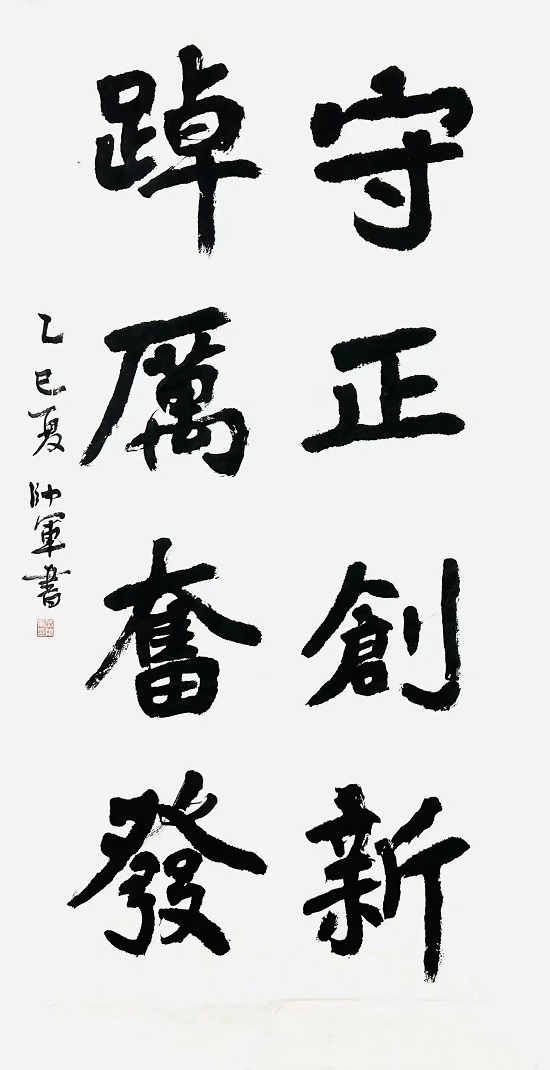 守正創新
踔厲奮發
乙巳夏帥軍書